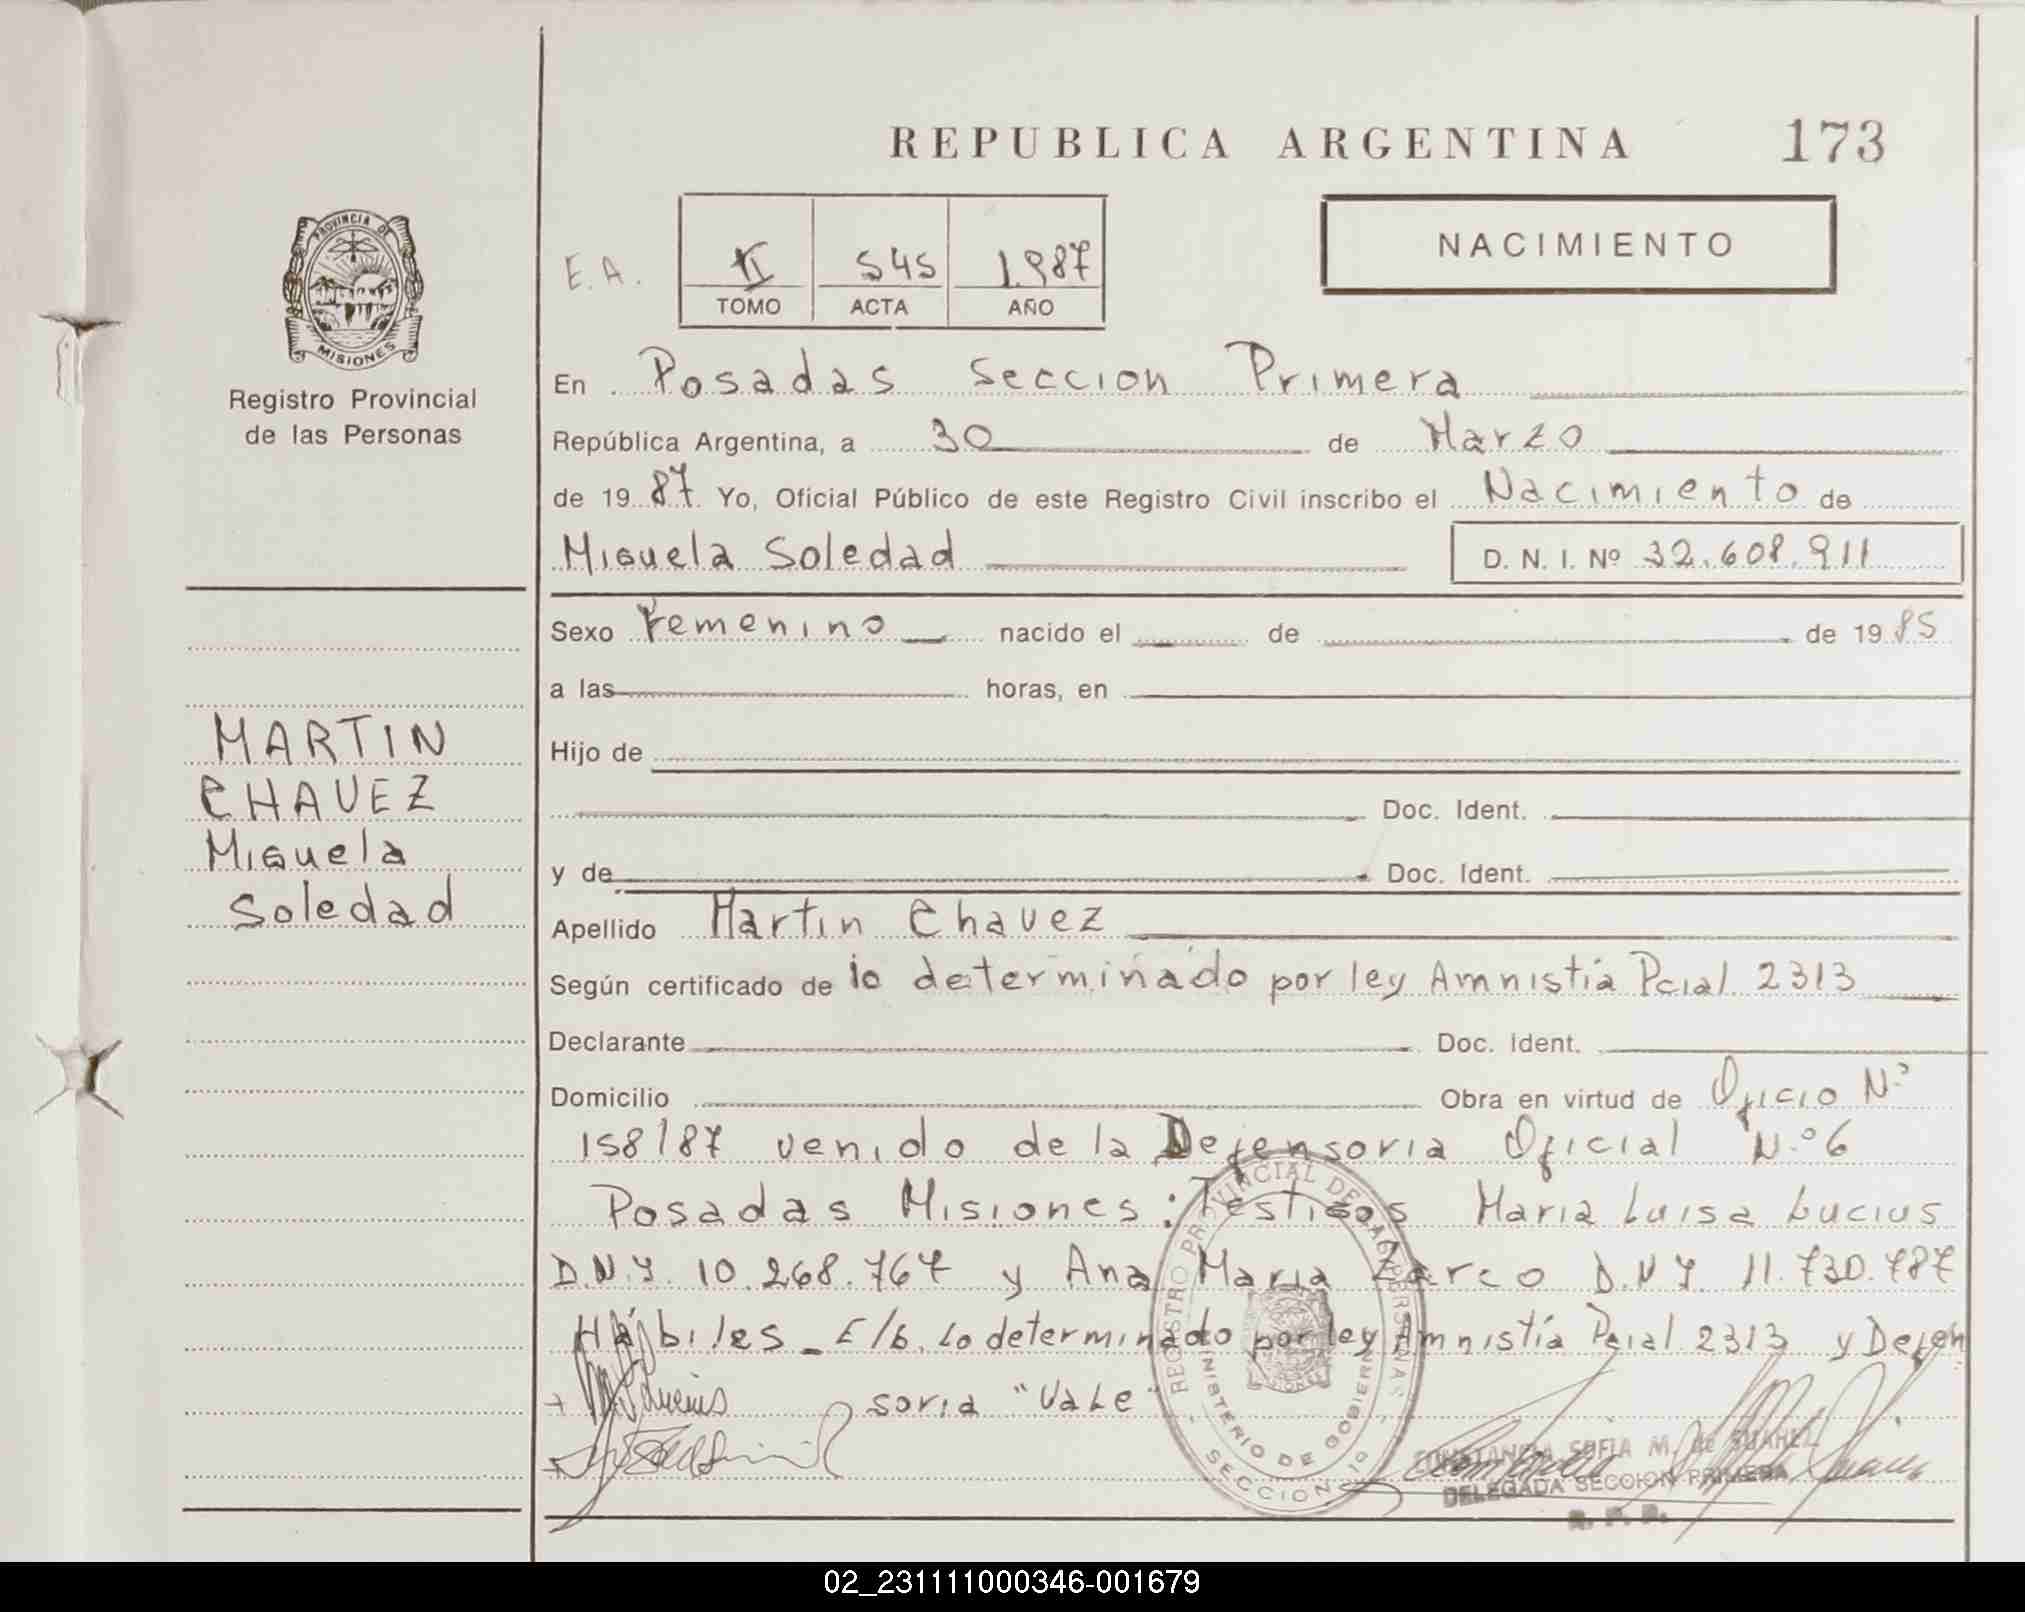 REPUBLICA ARGENTINA 173
NACIMIENTO
E.A. II 545 1.987
TOMO ACTA AÑO
PROVINCIA DE
MISIONES
Registro Provincial
de las Personas
MARTIN
CHAVEZ
Miguela
Soledad
En Posadas Seccion Primera
República Argentina, a 30 de Marzo
de 19 87 Yo, Oficial Público de este Registro Civil inscribo el Nacimiento de
Miguela Soledad D. N. I. Nº 32.608.911
Sexo Femenino nacido el de de 19 85
a las horas, en
Hijo de
Doc. Ident.
y de Doc. Ident.
Apellido Martin Chavez
Según certificado de lo determinado por ley Amnistía Pcial 2313
Declarante Doc. Ident.
Domicilio Obra en virtud de Oficio Nº
158/87 venido de la Defensoria Oficial N.º 6
Posadas Misiones: Testigos Maria Luisa Lucius
D.N.I. 10.268.767 y Ana Maria Zarco D.N.I. 11.730.787
Hábiles - E/b. Lo determinado por ley Amnistía Pcial 2313 y Defen
soria "Vale"
REGISTRO PROVINCIAL DE LAS PERSONAS
MINISTERIO DE GOBIERNO
SECCION 1º
CONSTANCIA SOFIA M. de SUAREZ
DELEGADA SECCION PRIMERA
R. P. P.
02_231111000346-001679